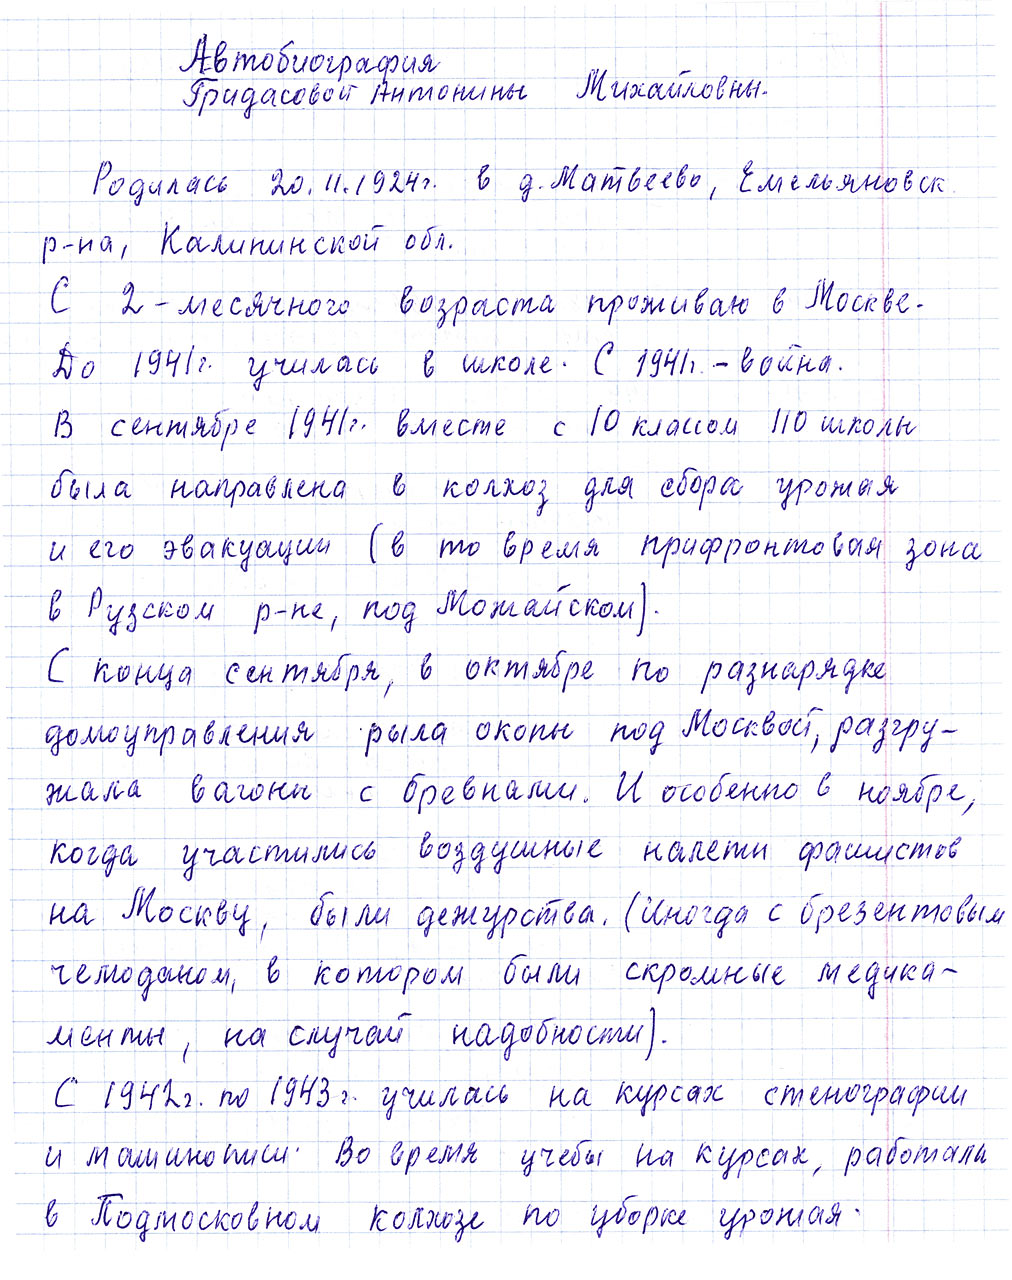 Автобиография
Гридасовой Антонины Михайловны.
Родилась 20.11.1924г. в д. Матвеево, Емельяновск.
р-на, Калининской обл.
С 2-месячного возраста проживаю в Москве.
До 1941г. училась в школе. С 1941г. - война.
В сентябре 1941г. вместе с 10 классом 110 школы
была направлена в колхоз для сбора урожая
и его эвакуации (в то время прифронтовая зона
в Рузском р-не, под Можайском).
С конца сентября, в октябре по разнарядке
домоуправления рыла окопы под Москвой, разгру-
жала вагоны с бревнами. И особенно в ноябре,
когда участились воздушные налеты фашистов
на Москву, были дежурства. (Иногда с брезентовым
чемоданом, в котором были скромные медика-
менты, на случай надобности).
С 1942г. по 1943г. училась на курсах стенографии
и машинописи. Во время учебы на курсах, работала
в Подмосковном колхозе по уборке урожая.